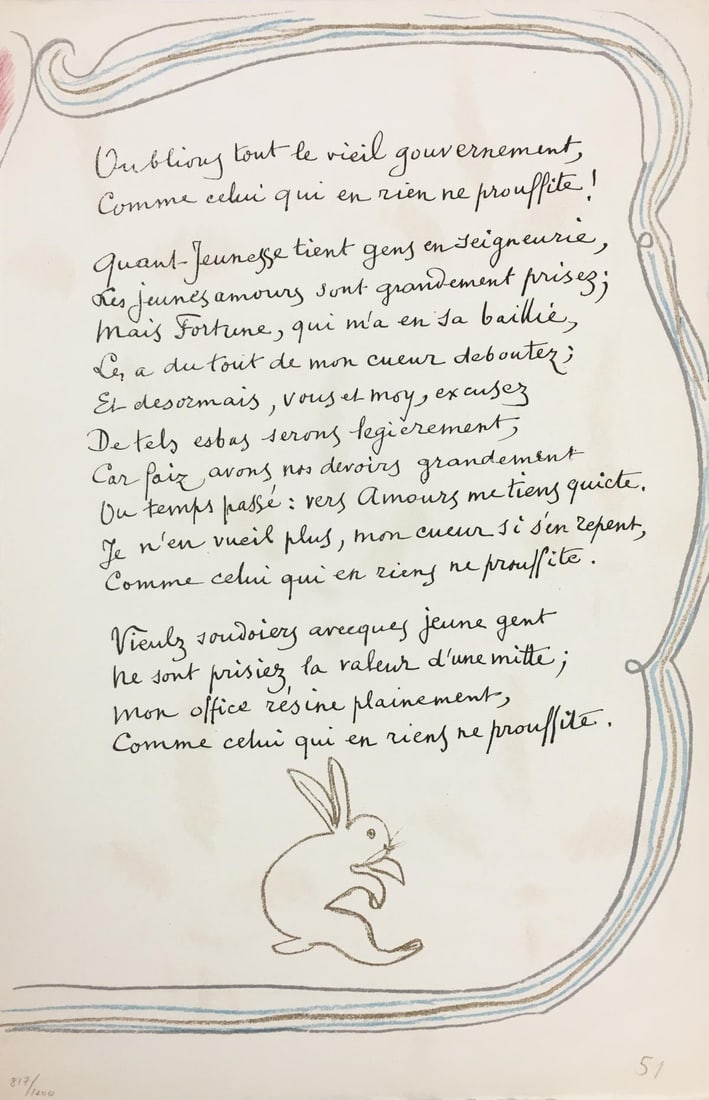 Oublions tout le vieil gouvernement,
Comme celui qui en rien ne prouffite!
Quant Jeunesse tient gens en seigneurie,
Les jeunes amours sont grandement prisez;
Mais Fortune, qui m'a en sa baillie,
Les a du tout de mon cueur deboutez;
Et desormais, vous et moy, excusez
De tels esbas serons legièrement,
Car faiz avons nos devoirs grandement
Ou temps passé: vers Amours me tiens quicte.
Je n'en vueil plus, mon cueur si s'en repent,
Comme celui qui en riens ne prouffite.
Vieulz soudoiers avecques jeune gent
Ne sont prisiez la valeur d'une mitte;
Mon office résine plainement,
Comme celui qui en riens ne prouffite.
817/1200
51